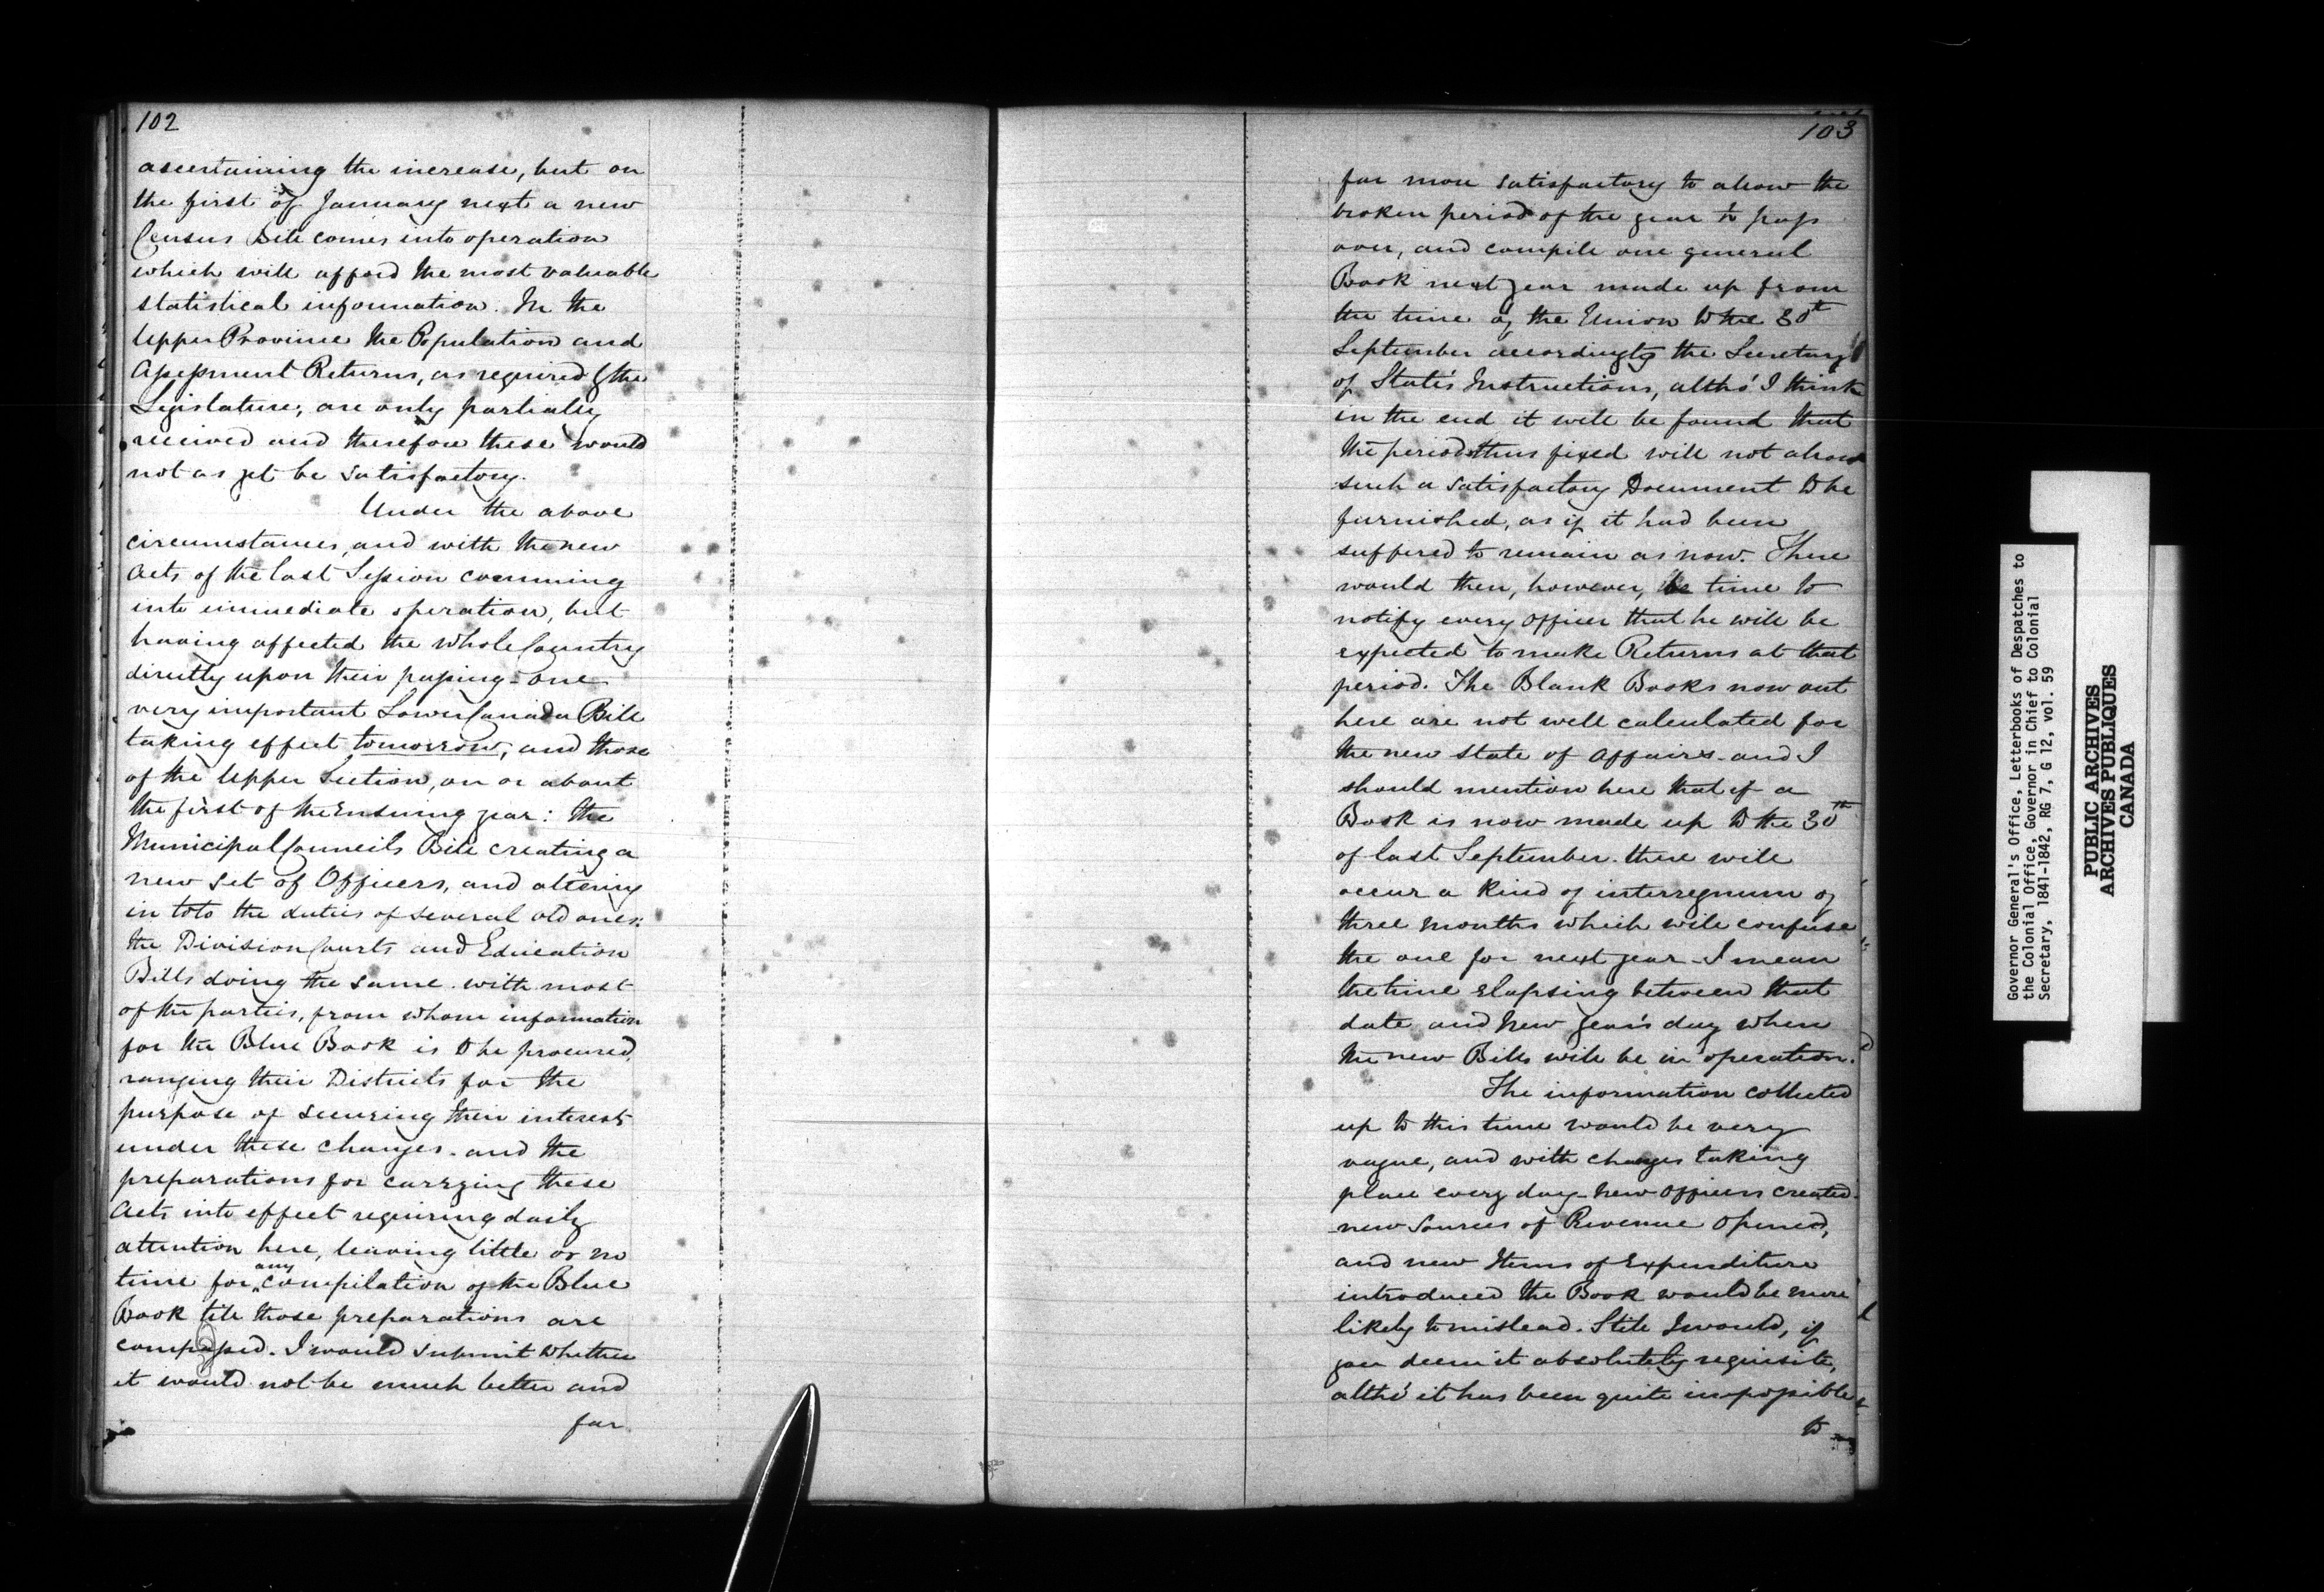 102
ascertaining the increase, but on
the first of January next a new
Census Bill comes into operation
which will afford the most valuable
statistical information. In the
Upper Province the Population and
Assessment Returns, as required by the
Legislature, are only partially
received and therefore these would
not as yet be satisfactory.
Under the above
circumstances, and with the new
Acts of the last Session comming
into immediate operation, but
having affected the whole Country
directly upon their passing - one
very important Lower Canada Bill
taking effect tomorrow, and those
of the Upper Section, on or about
the first of the Ensuing year: the
Municipal Councils Bill creating a
new set of Officers, and altering
in toto the duties of several old ones:
the Division Courts and Education
Bills doing the same with most
of the parties, from whom information
for the Blue Book is to be procured,
ranging their Districts for the
purpose of securing their interest
under these changes - and the
preparations for carrying these
Acts into effect requiring daily
attention here, leaving little or no
time for any compilation of the Blue
Book till those preparations are
I would submit whether
it would not be much better and
far
103
far more satisfactory to allow the
broken period of the year to pass
over, and compile one general
Book next year made up from
the time of the Union to the 30th
September accordingly the Secretary
of State's Instructions, altho' I think
in the end it will be found that
the period thus fixed will not allow
such a satisfactory Document to be
furnished, as if it had been
suffered to remain as now. There
would then, however, be time to
notify every officer that he will be
expected to make Returns at that
period. The Blank Books now out
here are not well calculated for
the new state of affairs - and I
should mention here that if a
Book is now made up to the 30th
of last September there will
occur a kind of interregnum of
three months which will confuse
the one for next year - I mean
the time elapsing between that
date and New Year's day when
the new Bills will be in operation.
The information collected
up to this time would be very
vague, and with changes taking
place every day - new officers created
new Sources of Revenue opened,
and new Items of Expenditure
introduced the Book would be more
likely to mislead. Still I would, if
you deem it absolutely requisite,
altho' it has been quite impossible
to
Governor General's Office, Letterbooks of Despatches to
the Colonial Office, Governor in Chief to Colonial
Secretary, 1841-1842, RG 7, G 12, vol. 59
PUBLIC ARCHIVES
ARCHIVES PUBLIQUES
CANADA